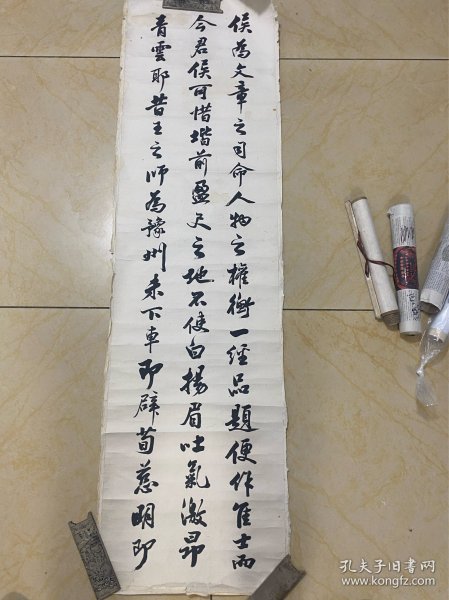 侯為文章之司命人物之權衡一經品題便作佳士而
今君侯何惜堦前盈尺之地不使白揚眉吐氣激昂
青雲耶昔王子師為豫州未下車即辟荀慈明即
孔夫子旧书网
www.kongfz.com